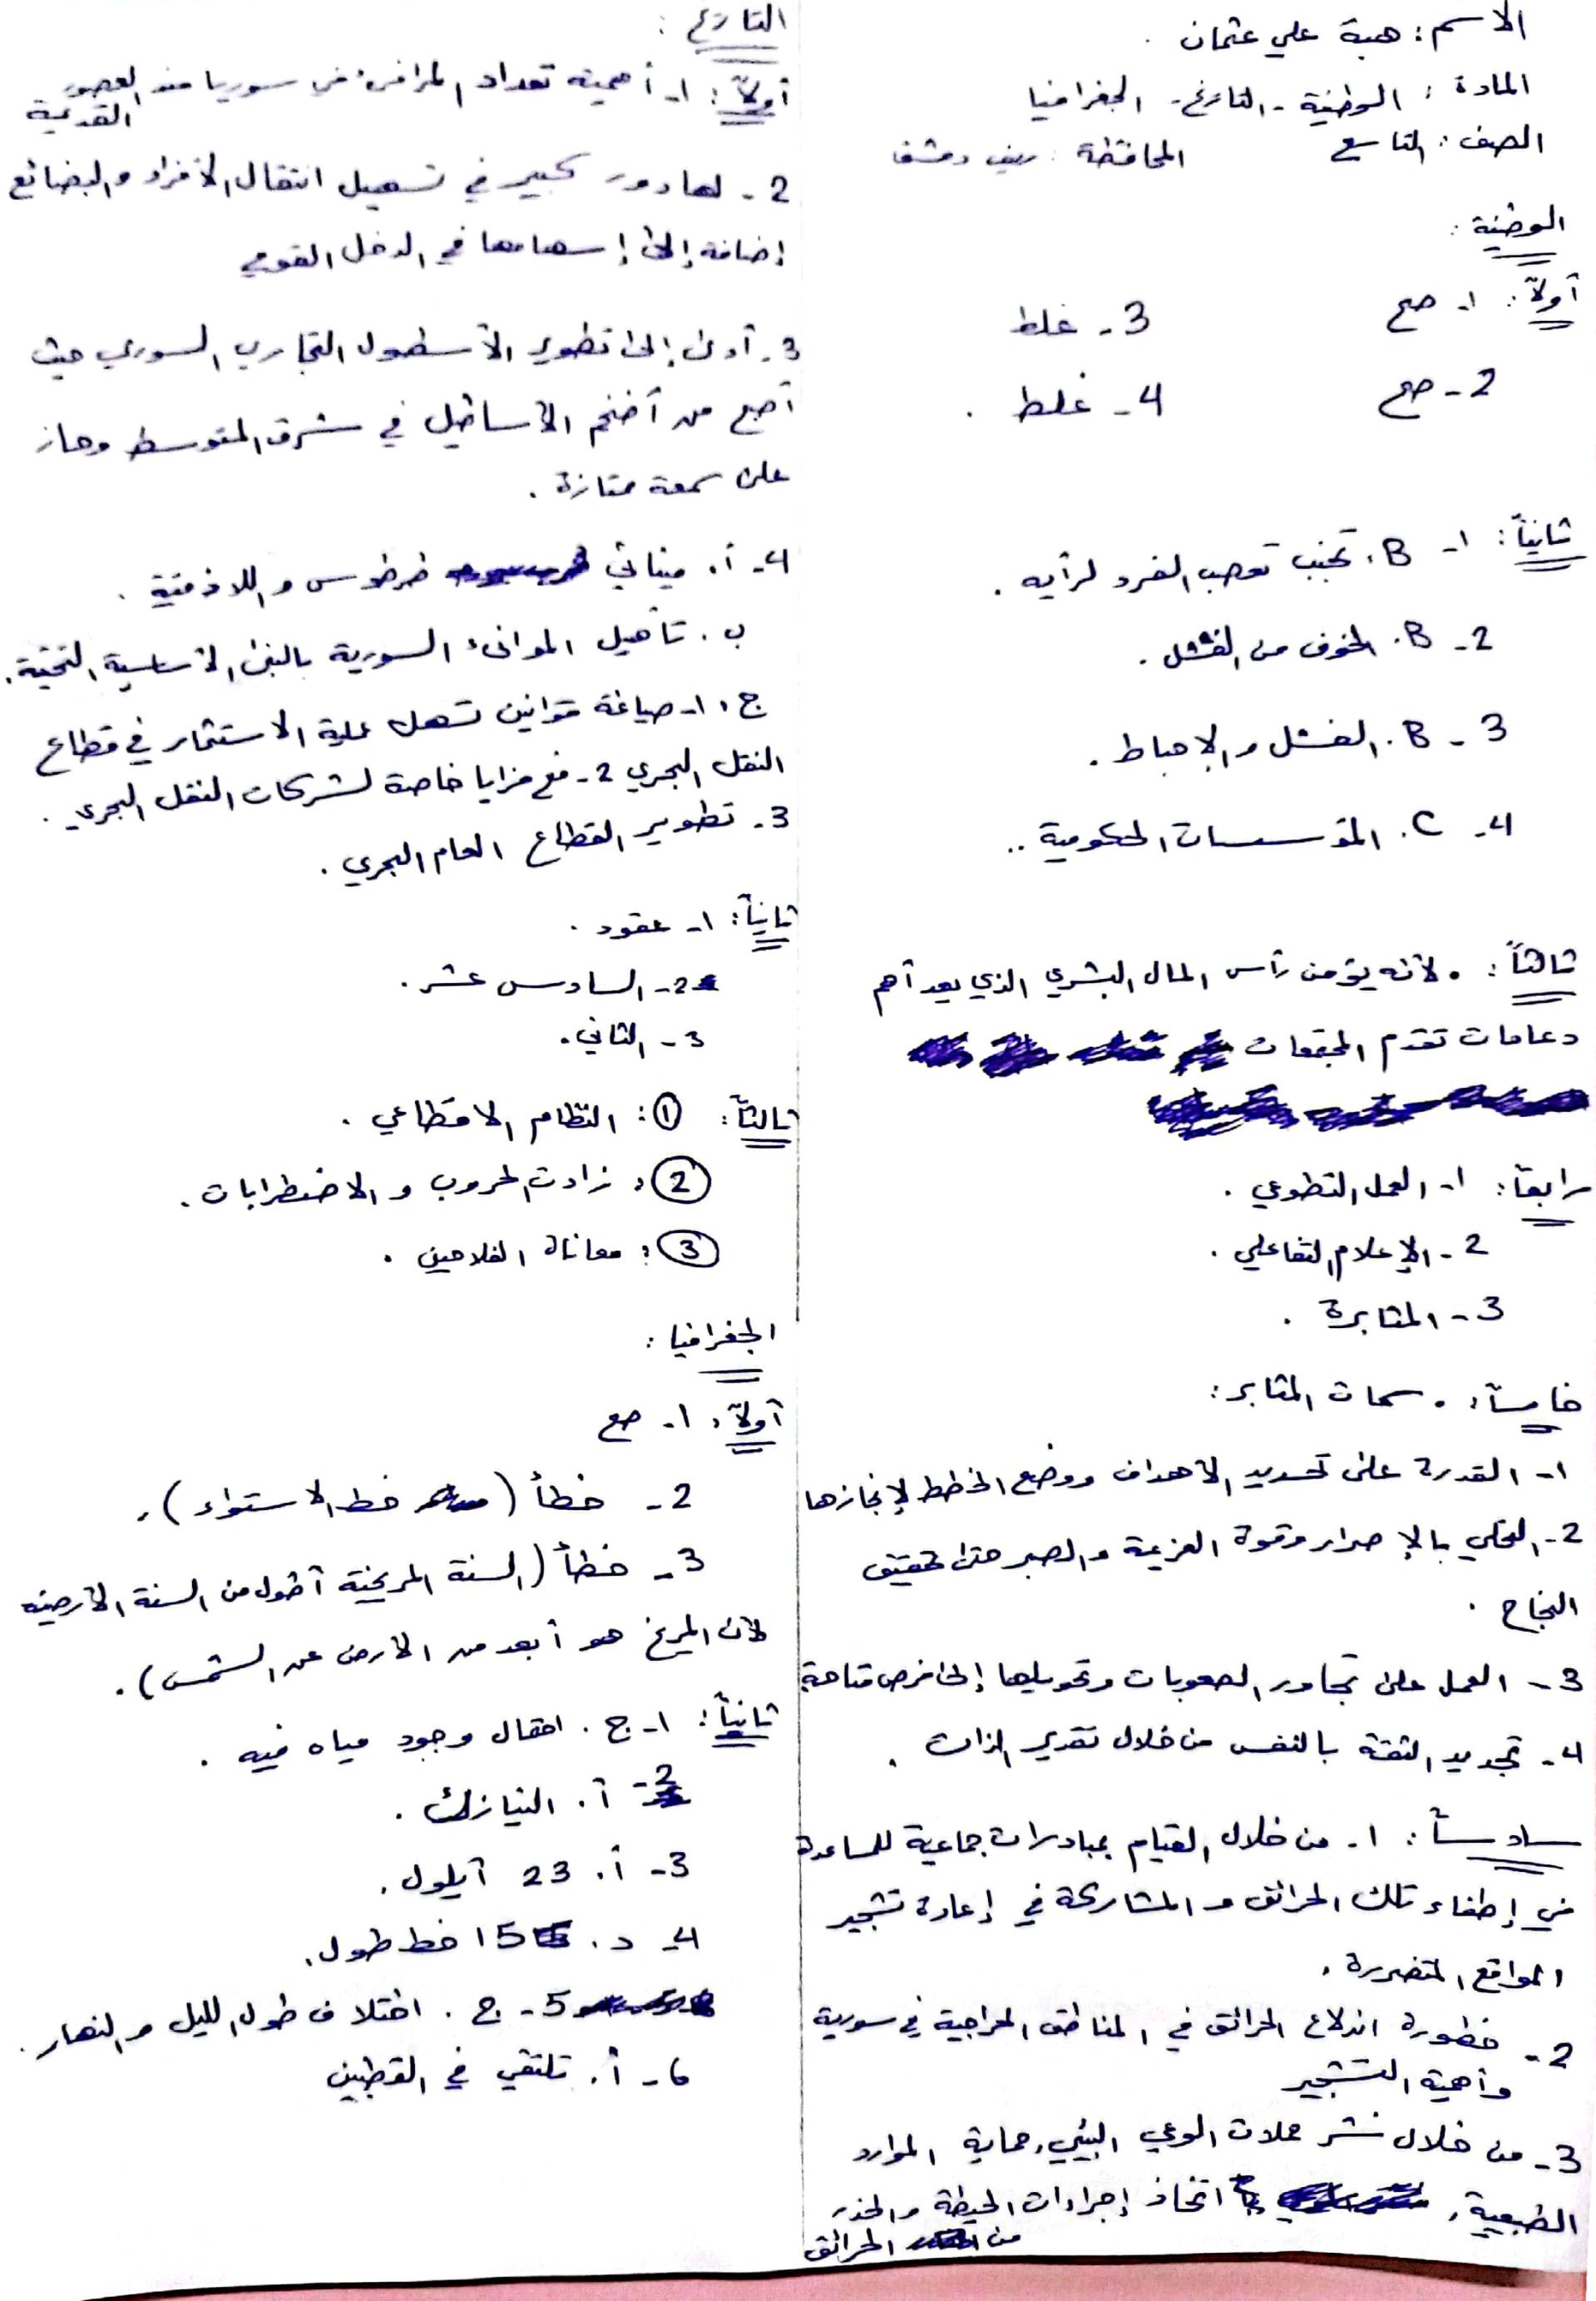 الاسم: هبة علي عثمان .
المادة: الوطنية - التاريخ - الجغرافيا
الصف: التاسع المحافظة: ريف دمشق
الوطنية:
أولاً: 1- صح 3- غلط
2- صح 4- غلط .
ثانياً: 1- B. تجنب تعصب الفرد لرأيه .
2- B. الخوف من الفشل .
3- B. الفشل و الإحباط .
4- C. المؤسسات الحكومية ..
ثالثاً: • لأنه يؤمن رأس المال البشري الذي يعد أهم
دعامات تقدم المجتمعات
رابعاً: 1- العمل التطوعي .
2- الإعلام التفاعلي .
3- المثابرة .
خامساً: • سمات المثابر:
1- القدرة على تحديد الأهداف ووضع الخطط لإنجازها
2- التحلي بالإصرار وقوة العزيمة و الصبر حتى تحقيق
النجاح .
3- العمل على تجاوز الصعوبات وتحويلها إلى فرص متاحة
4- تجديد الثقة بالنفس من خلال تقدير الذات .
سادساً: 1- من خلال القيام بمبادرات جماعية للمساعدة
في إطفاء تلك الحرائق و المشاركة في إعادة تشجير
المواقع المتضررة .
2- خطورة اندلاع الحرائق في المناطق الحراجية في سورية
وأهمية التشجير
3- من خلال نشر حملات الوعي البيئي، حماية الموارد
الطبيعية، اتخاذ إجراءات الحيطة و الحذر
من الحرائق
التاريخ:
أولاً: 1- أهمية تعداد المرافئ في سوريا منذ العصور
القديمة
2- لها دور كبير في تسهيل انتقال الأفراد و البضائع
إضافة إلى إسهامها في الدخل القومي
3- أدى إلى تطوير الأسطول التجاري السوري حيث
أصبح من أضخم الأساطيل في شرق المتوسط وحاز
على سمعة ممتازة .
4- أ. مينائي طرطوس و اللاذقية .
ب. تأهيل الموانئ السورية بالبنى الأساسية التحتية .
ج. 1- صياغة قوانين تسهل عملية الاستثمار في قطاع
النقل البحري 2- منح مزايا خاصة لشركات النقل البحري .
3- تطوير القطاع العام البحري .
ثانياً: 1- عقود .
2- السادس عشر .
3- الثاني .
ثالثاً: ①: النظام الاقطاعي .
②: زادت الحروب و الاضطرابات .
③: معاناة الفلاحين .
الجغرافيا:
أولاً: 1- صح
2- خطأ (خط الاستواء) .
3- خطأ (السنة المريخية أطول من السنة الأرضية
لأن المريخ هو أبعد من الأرض عن الشمس) .
ثانياً: 1- ج. احتمال وجود مياه فيه .
2- أ. النيازك .
3- أ. 23 أيلول .
4- د. 15 خط طول .
5- ج. اختلاف طول الليل و النهار .
6- أ. تلتقي في القطبين